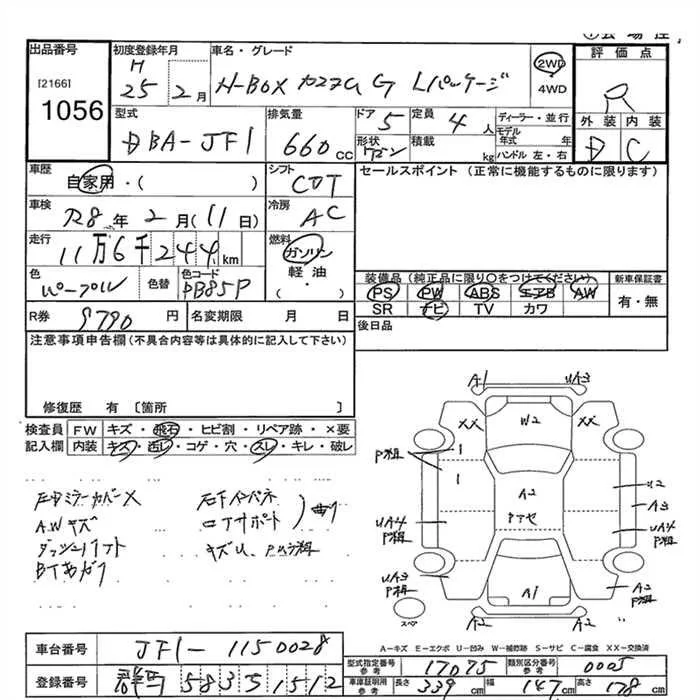 出品番号
[2166]
1056
初度登録年月
H
25 年 2月
車名・グレード
N-BOX カスタム G Lパッケージ
2WD
4WD
評価点
R
外装 内装
D C
型式
DBA-JF1
排気量
660 cc
ドア 5
定員 4 人
形状 ワゴン
積載 kg
ディーラー・並行
モデル年式 年
ハンドル 左・右
車歴
自家用・( )
シフト
CVT
セールスポイント (正常に機能するものに限ります)
車検
R8年 2月 (11日)
冷房
AC
走行
11万6千244km
燃料
ガソリン
軽油・
( )
色
パープル
色替
色コード
PB85P
装備品(純正品に限り○をつけてください)
新車保証書
PS PW ABS エアB AW
SR ナビ TV カワ
有・無
R券
9790円
名変期限 月 日
後日品
注意事項申告欄(不具合内容等は具体的に記入して下さい)
修復歴 有 〔箇所 〕
検査員記入欄
FW キズ・飛石・ヒビ割・リペア跡・×要
内装 キズ・汚レ・コゲ・穴・スレ・キレ・破レ
A.W キズ
キズU、Pムラ粗
A1 UA3
XX W2 XX
P粗
1
1
A2
U2
A3
UA4
P粗
UA4
P粗
UA3
P粗
A1
A2
P粗
A2 A2
スペア
A-キズ E-エクボ U-凹み W-補修跡 S-サビ C-腐食 XX-交換済
車台番号
JF1-1150028
型式指定番号 参考
17075
類別区分番号 参考
0005
登録番号
群馬 583 ら 1512
車庫証明用 参考
長さ 339 cm
幅 147 cm
高さ 178 cm